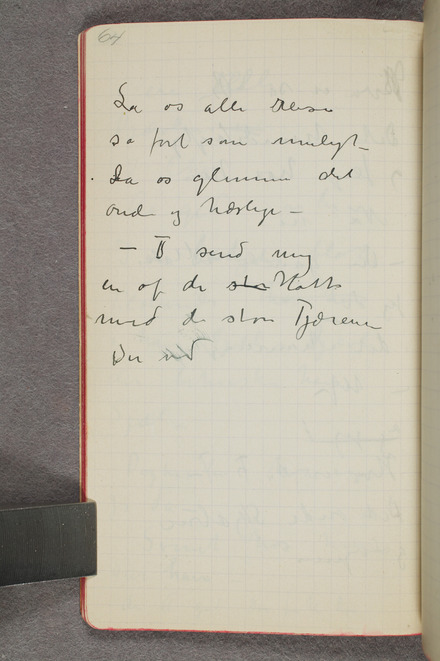 64
La os alle reise
så fort som muligt –
La os glemme det
onde og hæslige –
– II send mig
en af de sto Hatte
med de store Fjærene
Der ved